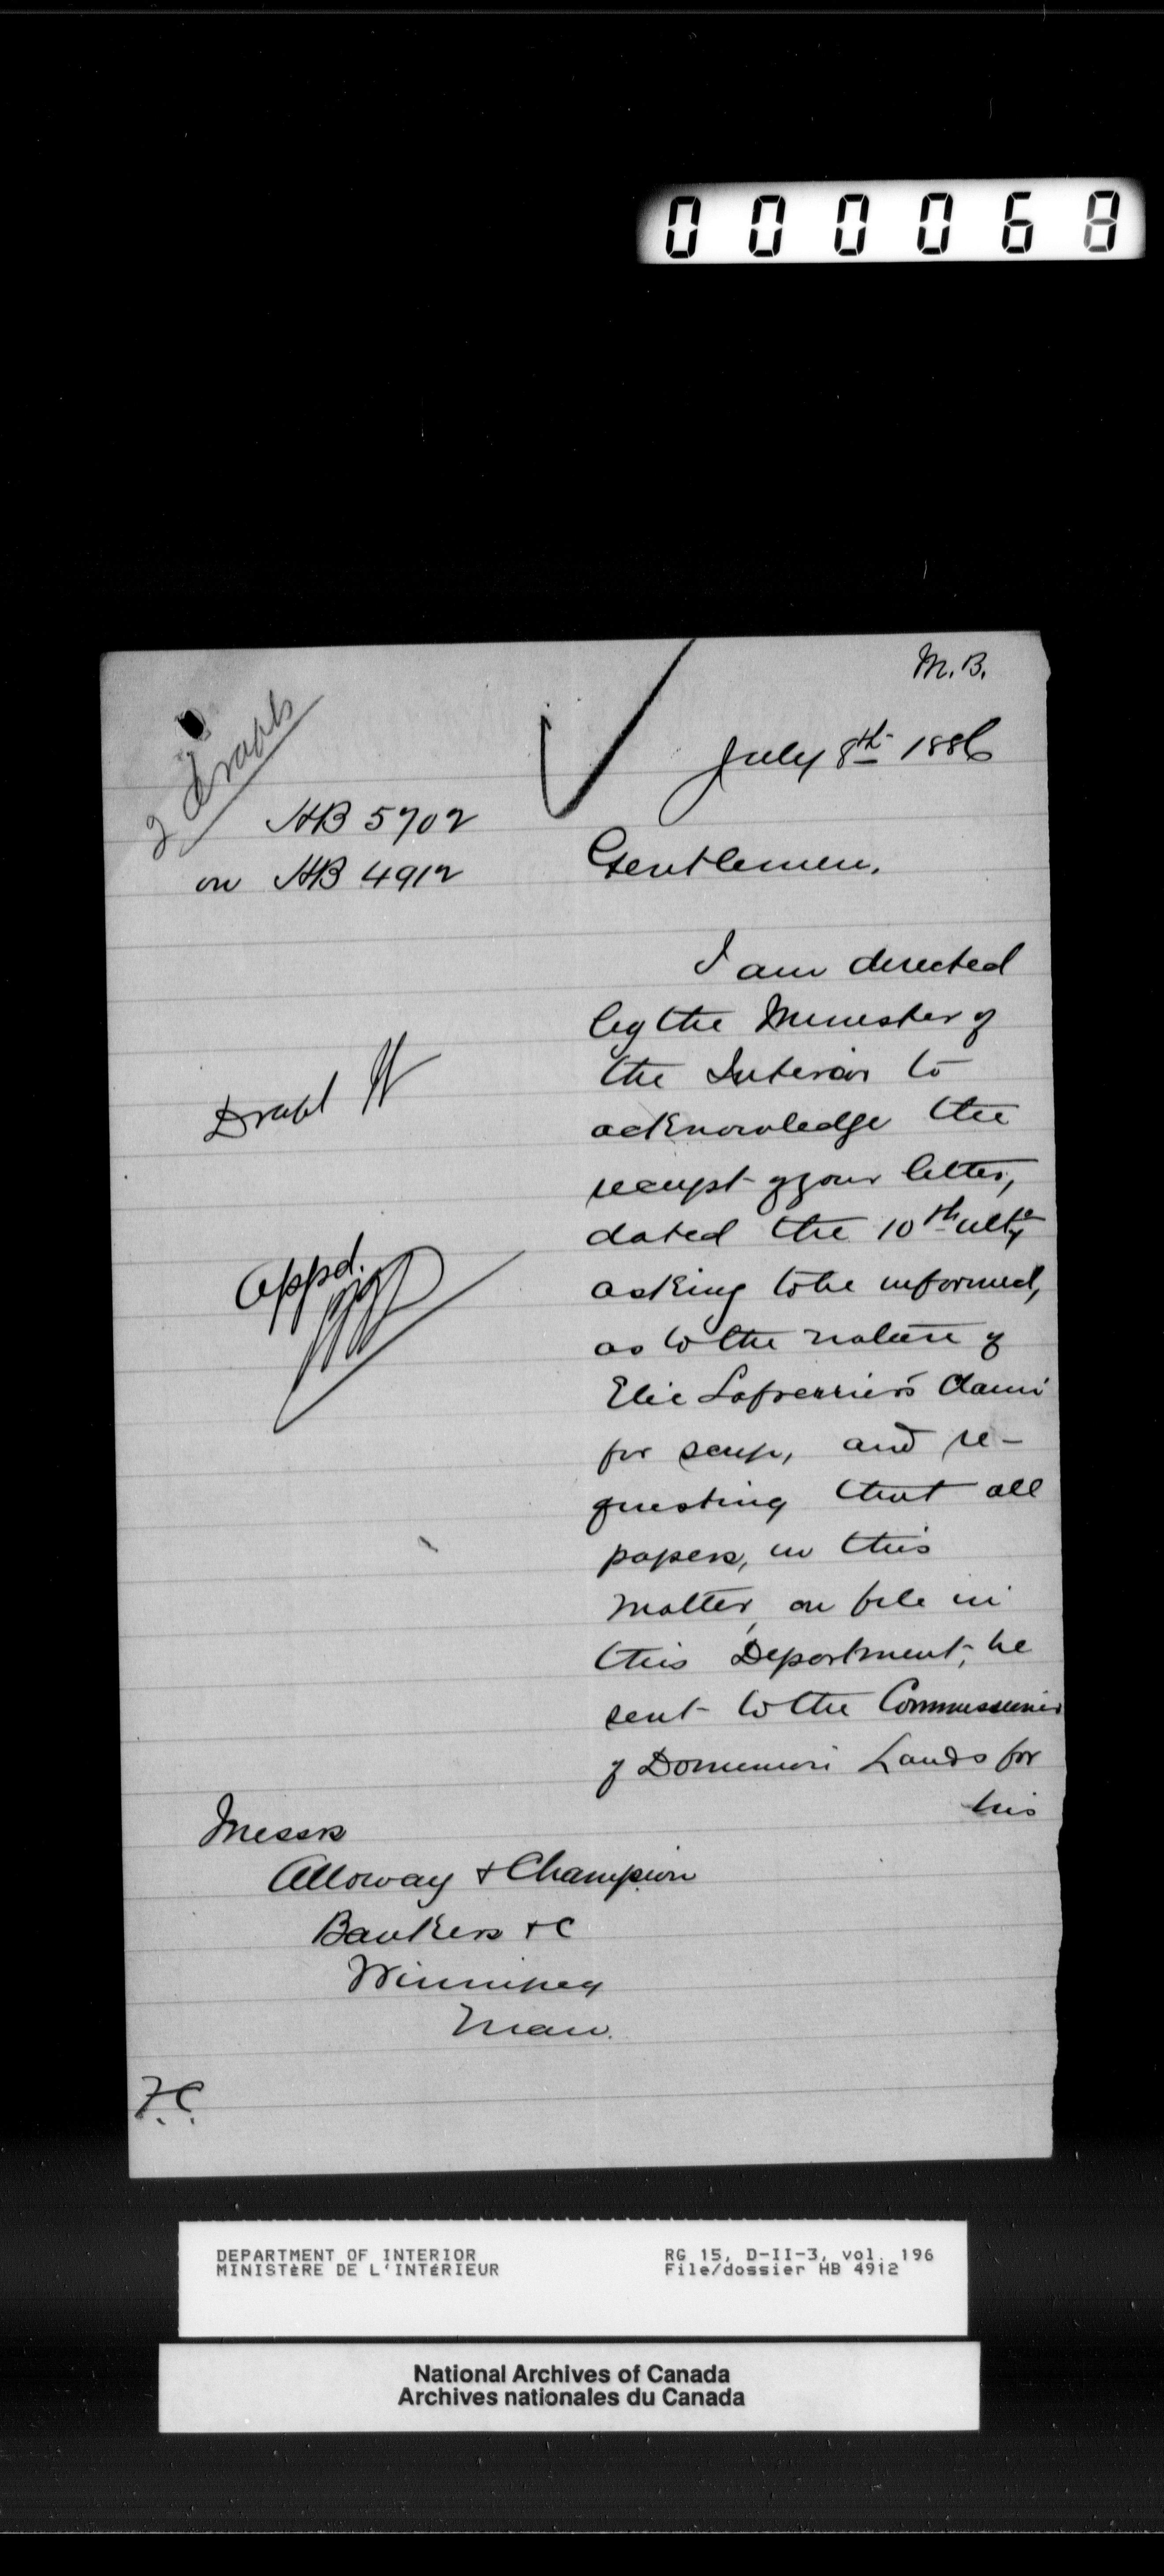 000068
M.B.
July 8th 1886
2 Drafts
HB 5702
on HB 4912
Gentlemen,
I am directed
by the Minister of
the Interior to
acknowledge the
receipt of your letter,
dated the 10th ulto
asking to be informed,
as to the nature of
Elie Lafrerrier's claim
for scrip, and re-
questing that all
papers, in this
matter, on file in
this Department, be
sent to the Commissioner
of Dominion Lands for
his
Draft
Appd.
Messrs
Alloway & Champion
Bankers &c
Winnipeg
Man.
F.C.
DEPARTMENT OF INTERIOR
MINISTÈRE DE L'INTÉRIEUR
RG 15, D-II-3, vol. 196
File/dossier HB 4912
National Archives of Canada
Archives nationales du Canada